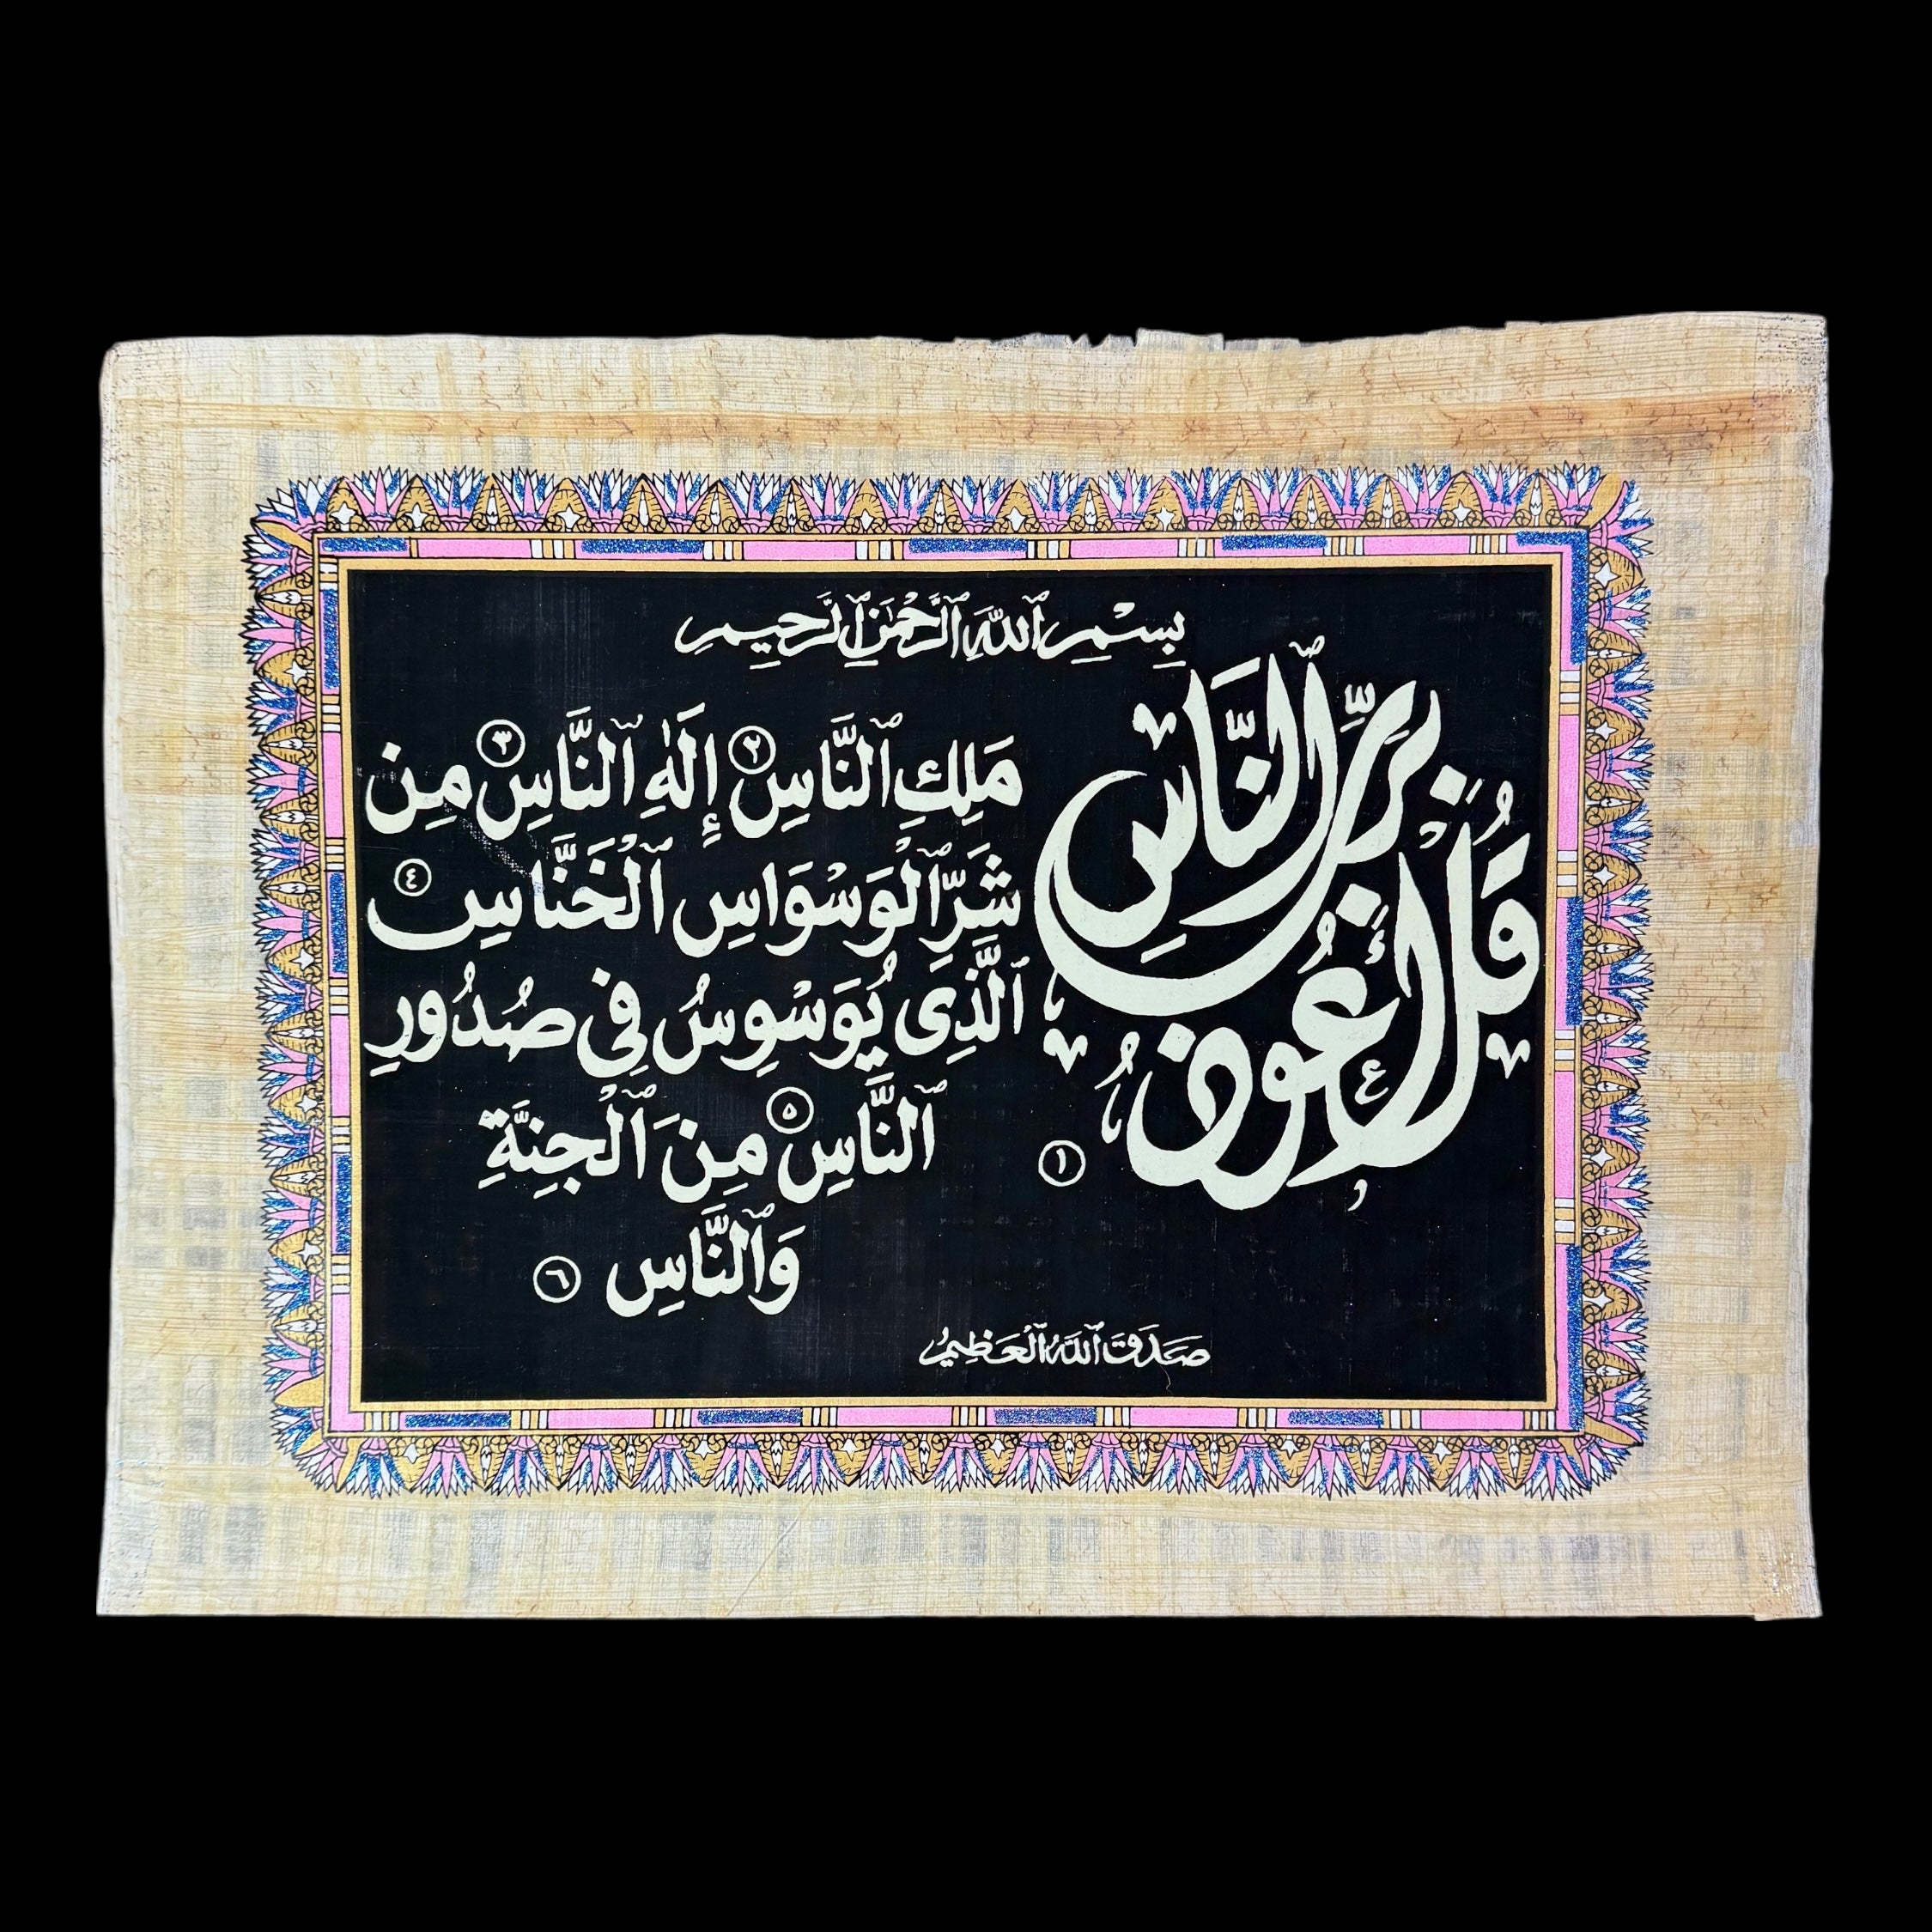 بِسْمِ ٱللَّهِ ٱلرَّحْمَٰنِ ٱلرَّحِيمِ
قُلْ أَعُوذُ بِرَبِّ ٱلنَّاسِ ١
مَلِكِ ٱلنَّاسِ ٢ إِلَٰهِ ٱلنَّاسِ ٣ مِن
شَرِّ ٱلْوَسْوَاسِ ٱلْخَنَّاسِ ٤
ٱلَّذِى يُوَسْوِسُ فِى صُدُورِ
ٱلنَّاسِ ٥ مِنَ ٱلْجِنَّةِ
وَٱلنَّاسِ ٦
صَدَقَ ٱللَّهُ ٱلْعَظِيمُ